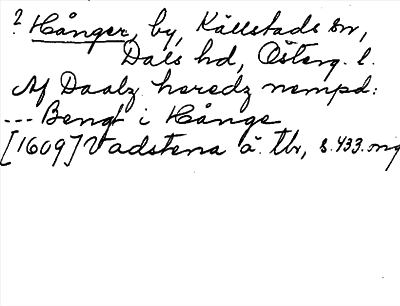 ? Hånger, by, Källstads sn,
Dals hd, Österg. l.
Af Daalz heredz nempd:
--- Bengt i Hånge
[1609] Vadstena ä. tb, s. 433. mg